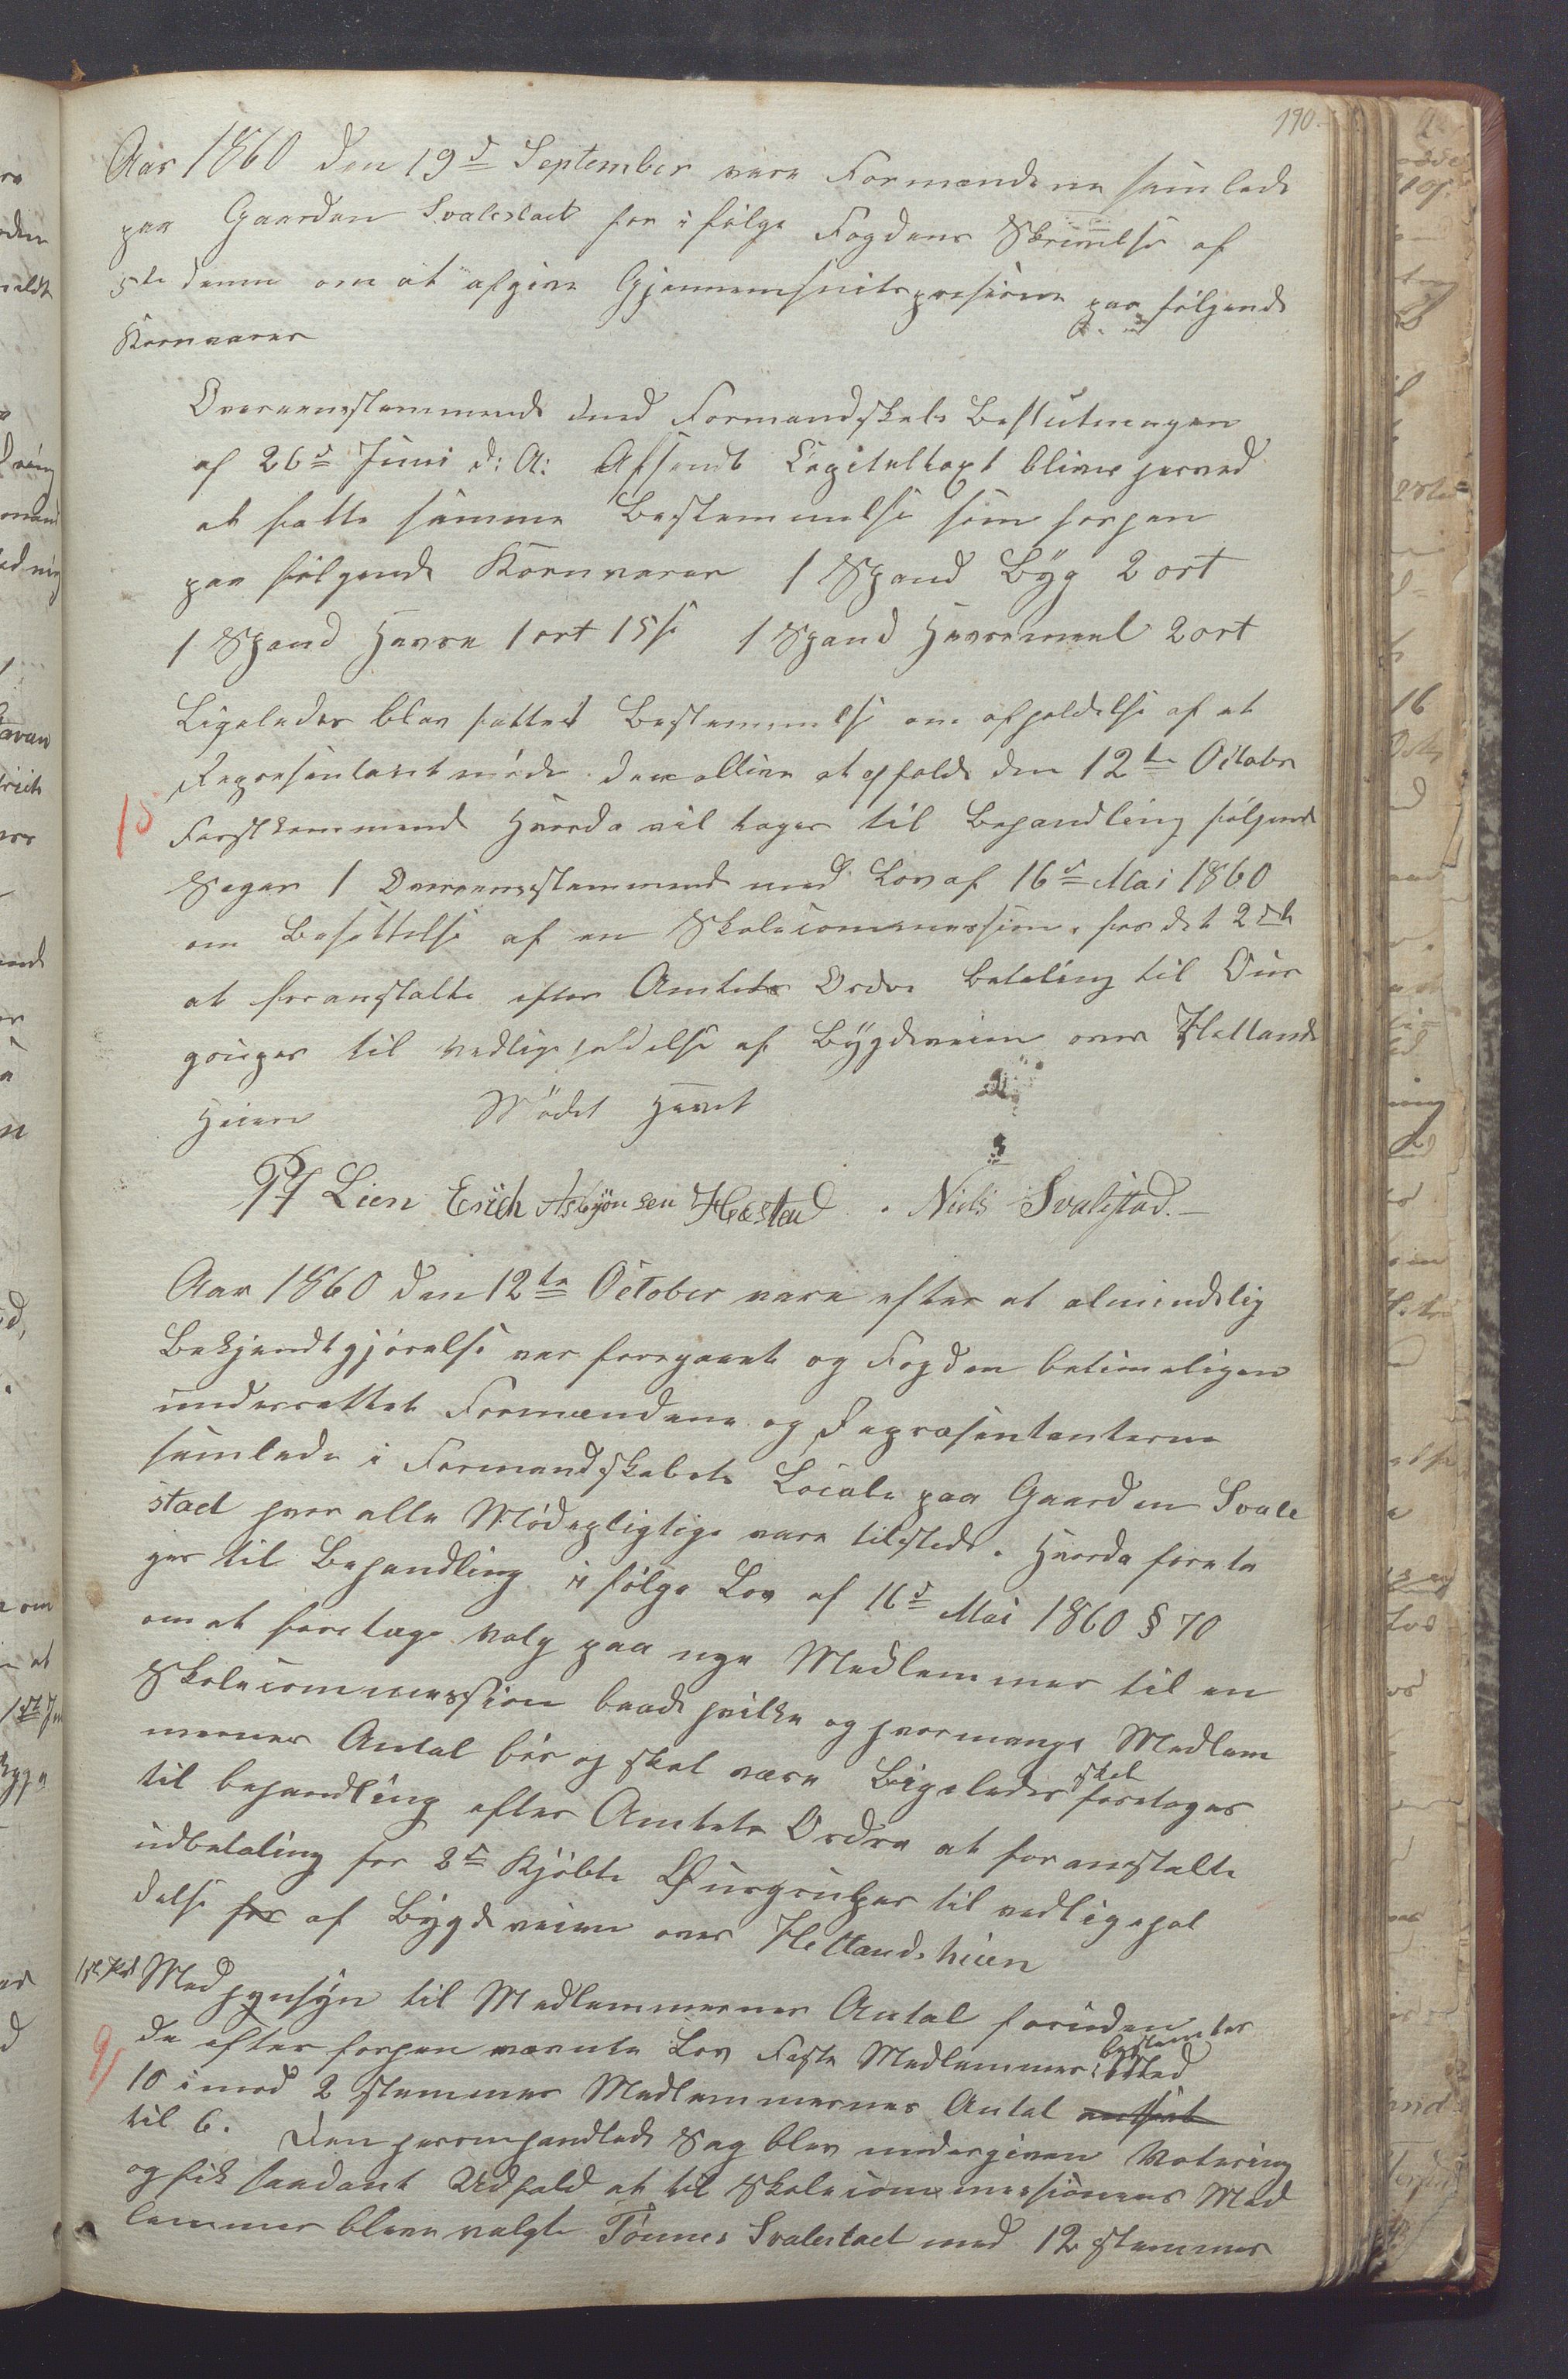 190.
Aar 1860 den 19d September vare Formændene samlede
paa Gaarden Svalestad for i følge Fogdens Skrivelse af
5te denne om at afgive Gjennemsnitspriserne paa følgende
Kornvarer
Overeenstemmende med Formandskabs Beslutningen
af 26d Juni d: A: Afsendt Capiteltaxt bliver herved
at fatte samme Bestemmelse som forhen
paa følgende Kornvarer 1 Spand Byg 2 ort
1 Spand Havre 1 ort 15 s 1 Spand Havremeel 2 ort
Ligeledes blev fattet Bestemmelse om afholdelse af et
Repræsentantmøde den allene at afholde den 12te October
Førstkommende Hvorda vil tages til Behandling følgende
Sager 1 Overeensstemmende med Lov af 16d Mai 1860
om Besettelse af en Skolecommession. for det 2det
at foranstalte efter Amtets Ordre Betaling til
til vedligeholdelse af Bygdeveien over Hellands
Heien Mødet Hævet
Lien Erich Asbjønsen Hæstad. Niels Svalestad.—
Aar 1860 den 12te October vare efter at almindelig
Bekjendtgjørelse var foregaaet og Fogden betimeligen
underrettet Formændene og Repræsentanterne
samlede i Formandskabets Locale paa Gaarden Svale
stad hvor alle Mødepligtige vare tilstede. Hvorda foreta
ges til Behandling i følge Lov af 16d Mai 1860 § 70
om at foretage Valg paa nye Medlemmer til en
Skolecommession baade hvilke og hvormange Medlem
mernes Antal bør og skal være Ligeledes skal foretages
til behandling efter Amtets Ordre at foranstalte
udbetaling for 2de Kjøbte til vedligehol
delse for af Bygdeveien over Hellandsheien
1ste Post Med hensyn til Medlemmernes Antal foruden
de efter forhen nævnte Lov Faste Medlemmer bestemtes
10 imod 2 stemmer Medlemmernes Antal
til 6. Den heromhandlede Sag blev undergiven Votering
og fik saadant Udfald at til Skolecommessionens Med
lemmer bleve valgte Tønnes Svalestad med 12 stemmer